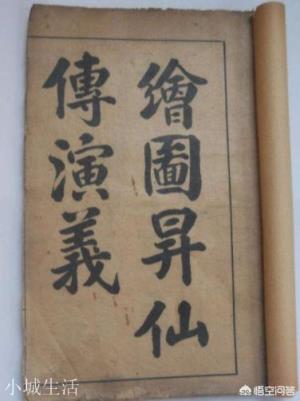 繪圖昇仙
傳演義
小城生活
悟空问答